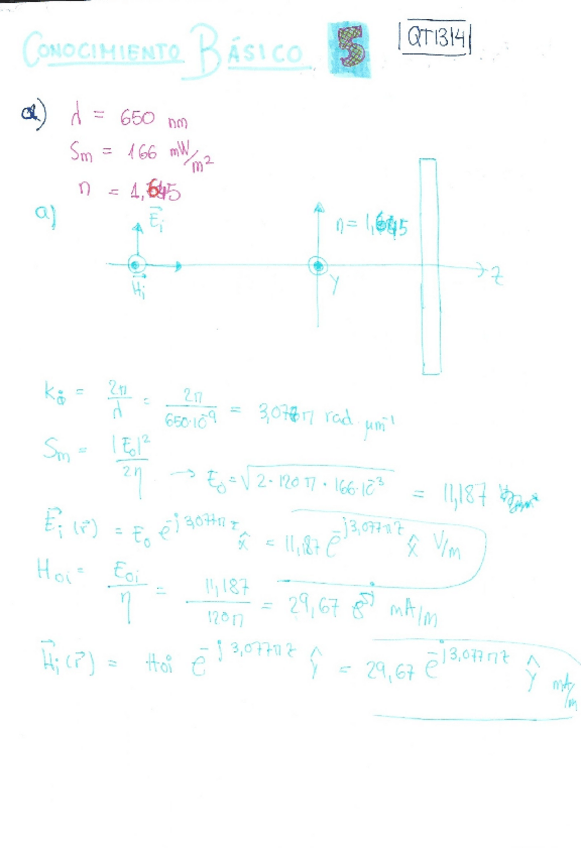 CONOCIMIENTO BÁSICO 5 QT1314
a) λ = 650 nm
Sm = 166 mW/m²
n = 1,645
a)
E⃗i
n = 1,645
H⃗i
Y
Z
k₀ = 2π/λ = 2π/650·10⁻⁹ = 3,077π rad μm⁻¹
Sm = |E₀|²/2η → E₀ = √(2·120π·166·10⁻³) = 11,187
E⃗i(r⃗) = E₀ e^(-j3,077πz) x̂ = 11,187 e^(-j3,077πz) x̂ V/m
H₀i = E₀i/η = 11,187/120π = 29,67 mA/m
H⃗i(r⃗) = H₀i e^(-j3,077πz) ŷ = 29,67 e^(-j3,077πz) ŷ mA/m